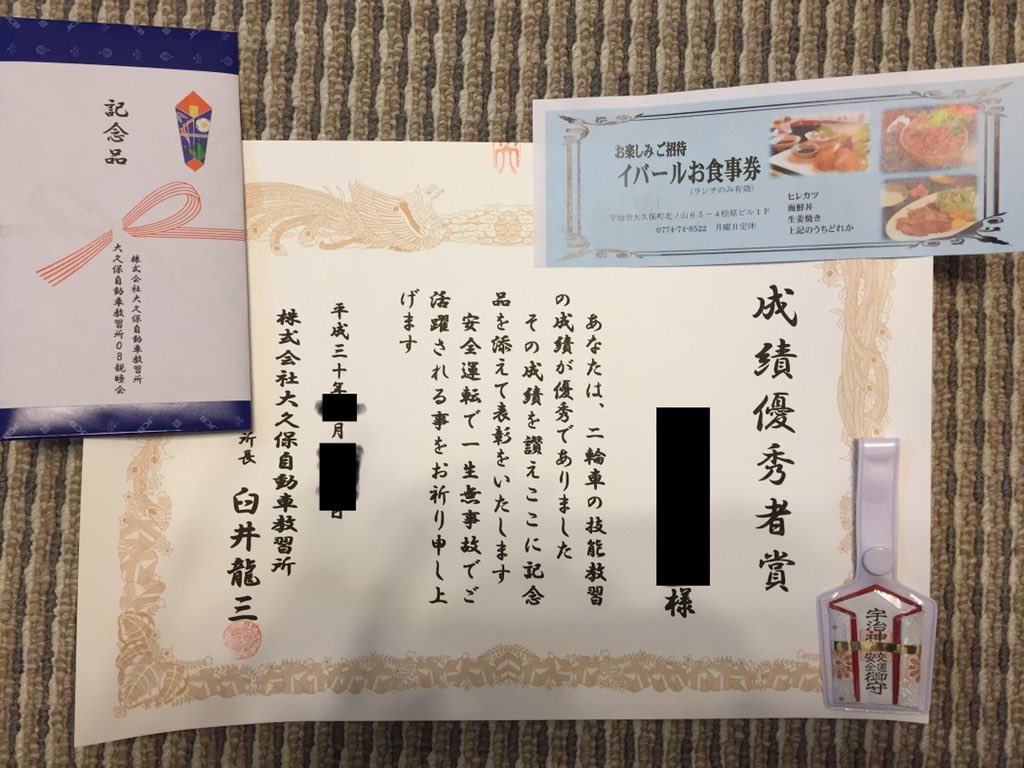 記念品
株式会社大久保自動車教習所
大久保自動車教習所OB親睦会
お楽しみご招待
イバールお食事券
(ランチのみ有効)
宇治市大久保町北ノ山65-4桧原ビル1F
0774-74-8522 月曜日定休
ヒレカツ
海鮮丼
生姜焼き
上記のうちどれか
成績優秀者賞
様
あなたは、二輪車の技能教習
の成績が優秀でありました
その成績を讃えここに記念
品を添えて表彰をいたします
安全運転で一生無事故でご
活躍される事をお祈り申し上
げます
平成三十年 月 日
株式会社大久保自動車教習所
所長 臼井龍三
宇治神
交通安全御守